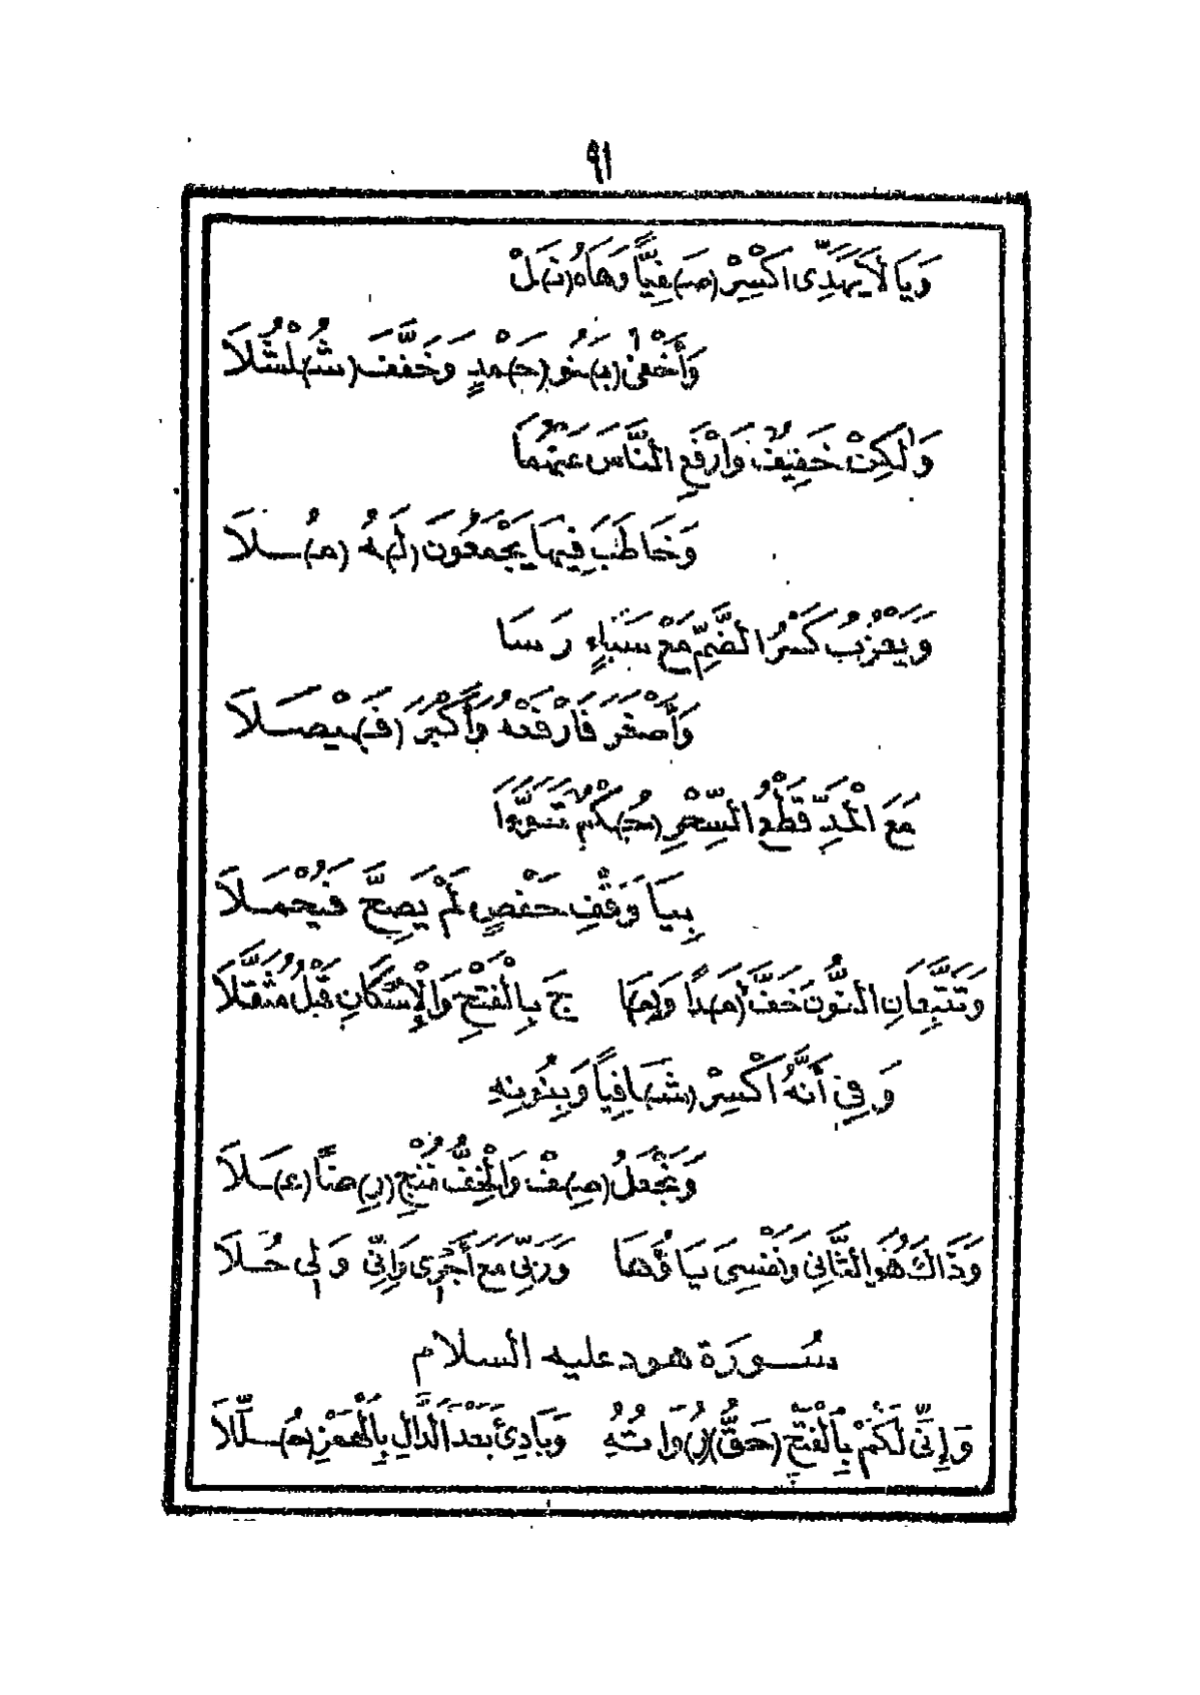 ٩١
وَيَا لَا يَهَدِّى اكْسِرْ (صَـ)فِيًّا وَهَاهُ (نَـ)لْ
وَأَخْفَى (بَـ)نُو (حَـ)مْدٍ وَخَفَّفَ (شُـ)لْشُلَا
وَلَكِنْ خَفِيفٌ وَارْفَعِ النَّاسَ عَنْهُمَا
وَخَاطَبَ فِيهَا يَجْمَعُونَ (لَـ)هُ (مُـ)ـلَا
وَيَعْزُبُ كَسْرُ الضَّمِّ مَعْ سَبَاءٍ رَسَا
وَأَصْغَرَ فَارْفَعْهُ وَأَكْبَرَ (فَـ)يْصَلَا
مَعَ الْمَدِّ قَطْعُ السِّحْرِ (حُـ)كْمٌ تَبَوَّءَا
بِيَا وَقْفِ حَفْصٍ لَمْ يَصِحَّ فَيُحْمَلَا
وَتَتَّبِعَانِ النُّونَ خَفَّ (مَـ)دًا وَمَا جَ بِالْفَتْحِ وَالْإِسْكَانِ قَبْلُ مُثَقَّلَا
وَفِي أَنَّهُ اكْسِرْ (شَـ)افِيًا وَبِنُونِهِ
وَنَجْعَلُ (صِـ)فْ وَالْخِفُّ نُنْجِ (رِ)ضًا (عَـ)ـلَا
وَذَاكَ هُوَ الثَّانِى وَنَفْسِى يَاؤُهَا وَرَبِّى مَعَ أَجْرِى وَإِنِّى وَلِى حُـلَا
سُورَة هود عليه السلام
وَإِنِّى لَكُمْ بِالْفَتْحِ (حَقُّ) (رُ)وَاتُهُ وَبَادِئَ بَعْدَ الدَّالِ بِالْهَمْزِ (حُـ)ـلِّلَا